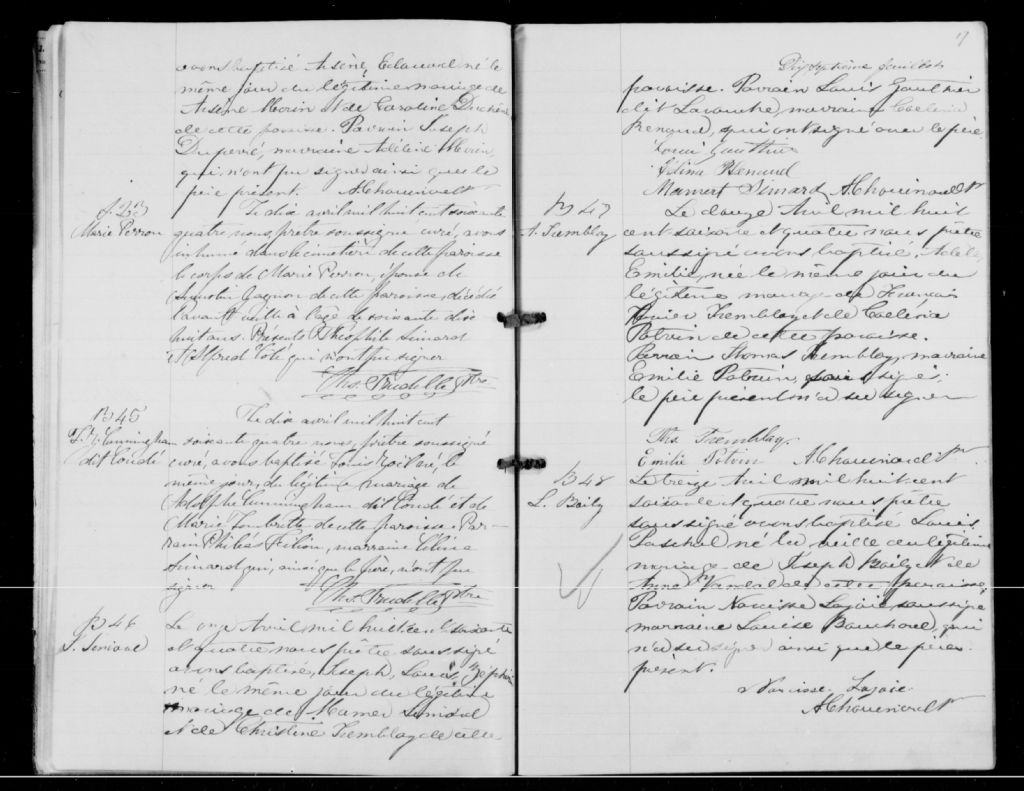 avons baptisé Arsène, Edouard né le
même jour du légitime mariage de
Arsène Morin et de Caroline Duchène
de cette paroisse. Parrain Joseph
Duperré, marraine Adeline Morin,
qui n'ont pu signer ainsi que le
père présent. AChouinard Ptr
S. 23
Marie Perron
Le dix avril mil huit cent soixante
quatre, nous, prêtre soussigné curé, avons
inhumé dans le cimetière de cette paroisse
le corps de Marie Perron, épouse de
Augustin Gagnon de cette paroisse, décédée
l'avant veille à l'age de soixante dix
huit ans. Présents Théophile Simard
et Alfred Coté qui n'ont pu signer
Ths. Trudelle Ptre
B 45
Cunningham
dit Condé
Le dix avril mil huit cent
soixante quatre nous, prêtre soussigné
curé, avons baptisé Louis, né le
même jour, du légitime mariage de
Adolphe Cunningham dit Condé et de
Marie de cette paroisse. Par-
rain Philéas Filion, marraine Célina
Simard qui, ainsi que le père, n'ont pu
signer
Ths. Trudelle Ptre
B 46
L. Simard
Le onze Avril mil huit cent soixante
et quatre nous prêtre soussigné
avons baptisé, Joseph, Louis, Zéphirin
né le même jour du légitime
mariage de Mamer Simard
et de Christine Tremblay de cette
Dix septième feuillet
paroisse. Parrain Louis Gauthier
dit Larouche, marraine
Renaud, qui ont signé avec le père
Louis Gauthier
Mamert Simard AChouinard Ptr
B 47
A. Tremblay
Le douze Avril mil huit
cent soixante et quatre nous prêtre
soussigné avons baptisé, Adèle,
Emilie, née le même jour du
légitime mariage de François
Xavier Tremblay et de
Potvin de cette paroisse.
Parrain Thomas Tremblay, marraine
Emilie Potvin, signés.
le père présent n'a su signer
Ths Tremblay.
Emilie Potvin AChouinard Ptr
B 48
L. Baily
Le treize Avril mil huit cent
soixante et quatre nous prêtre
soussigné avons baptisé Louis
Paschal né la veille du légitime
mariage de Joseph Baily et de
Anne Vandal de cette paroisse,
Parrain Narcisse Lajoie, soussigné
marraine Louise Bouchard, qui
n'a su signer ainsi que le père
présent.
Narcisse Lajoie
AChouinard Ptr